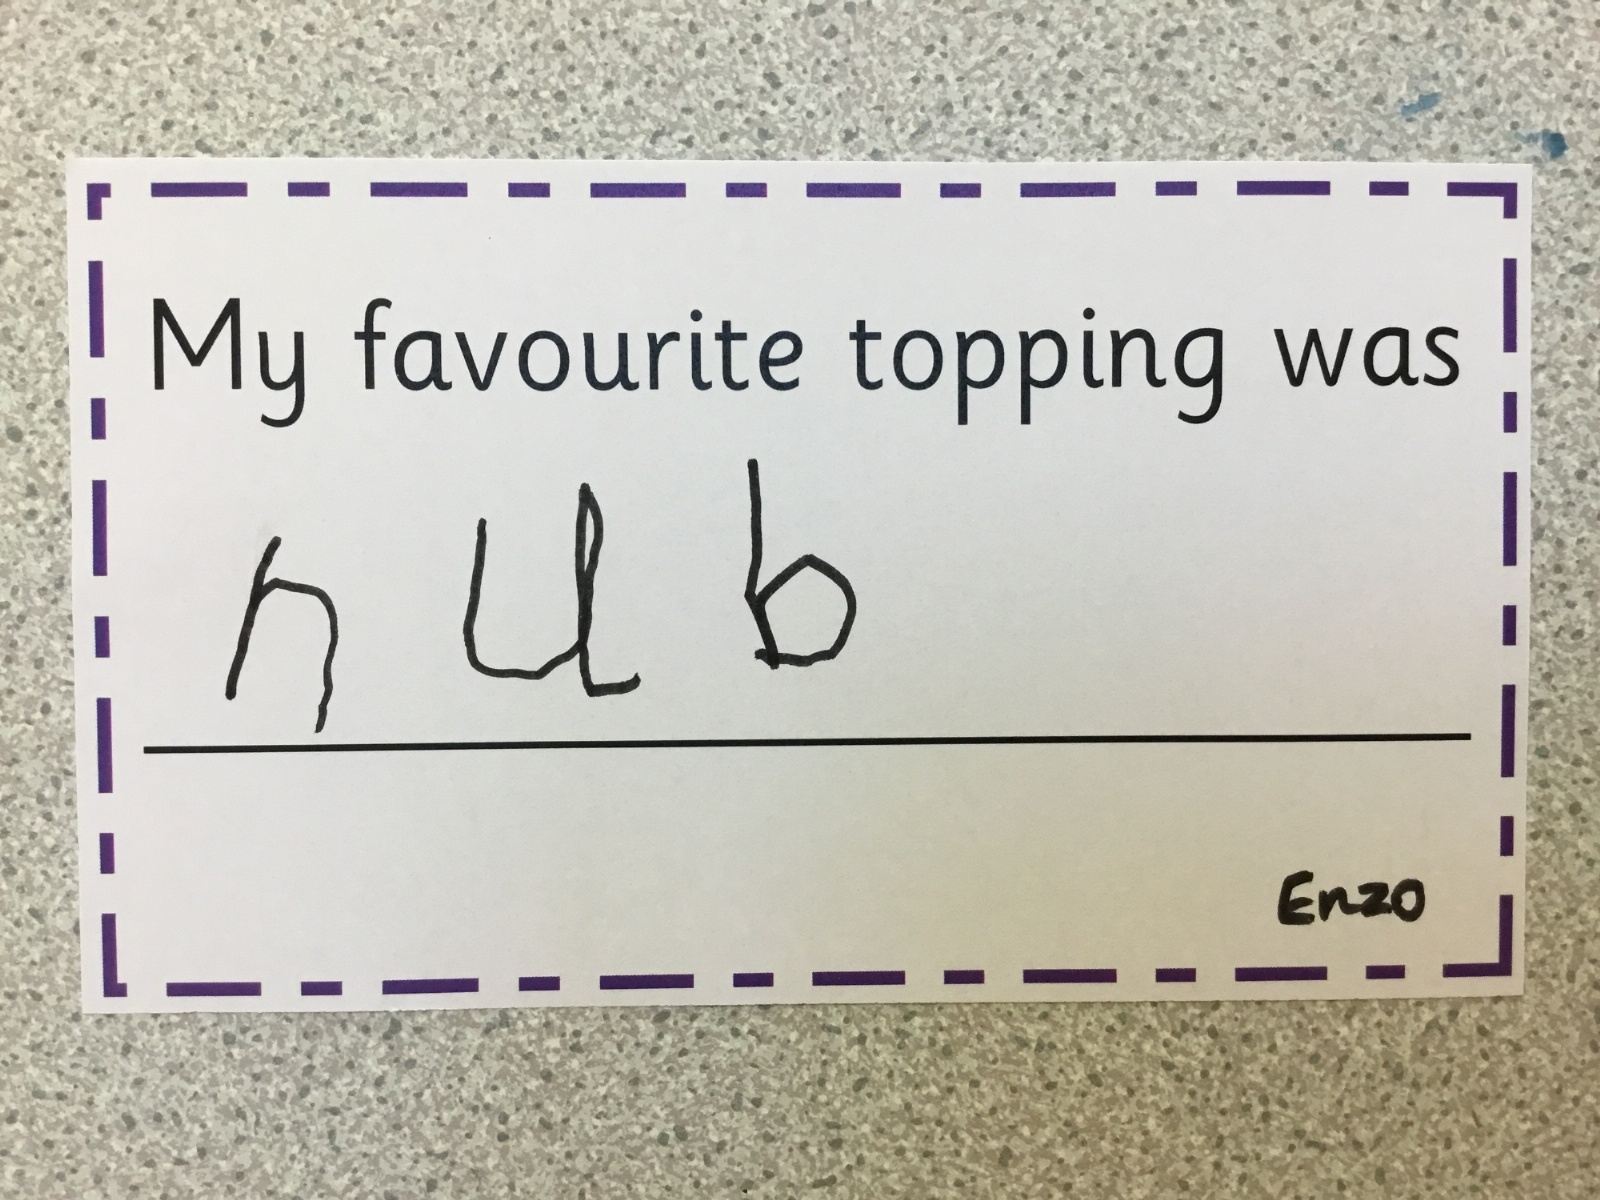 My favourite topping was
nub
Enzo